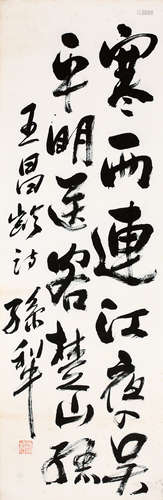 寒雨連江夜入吴
平明送客楚山孤
王昌龄诗
孫犁